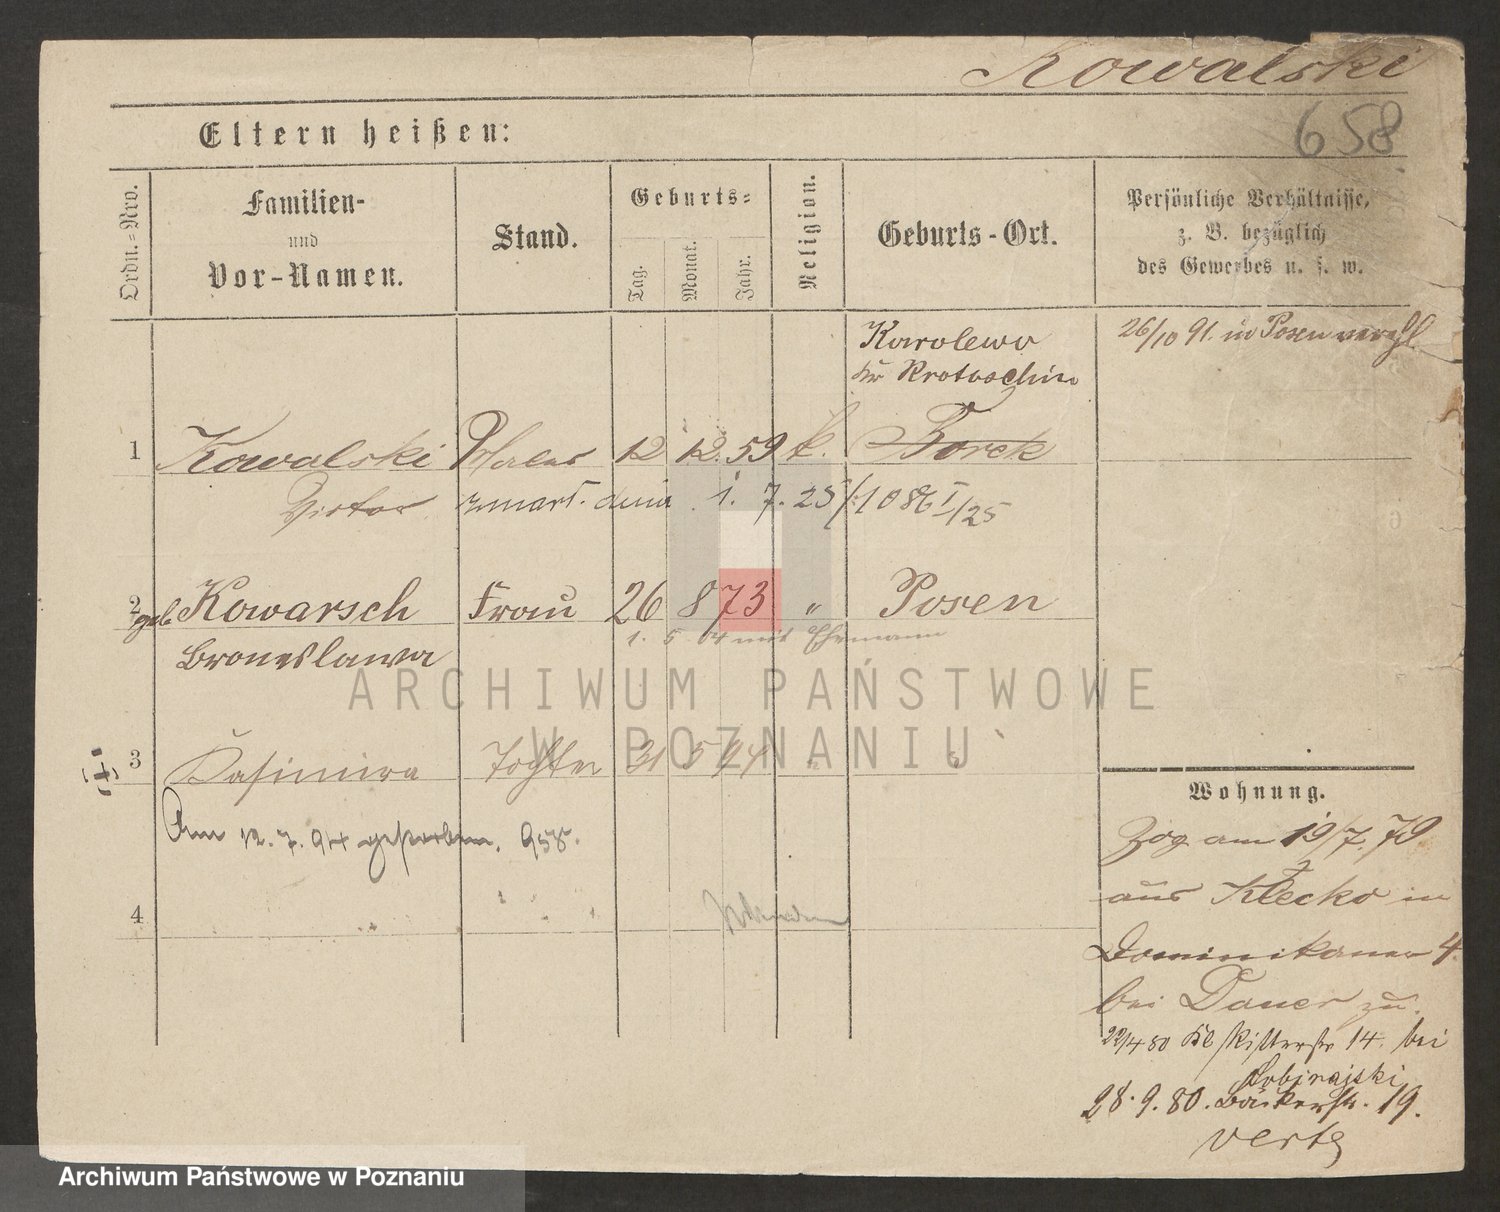 Kowalski
658
Eltern heißen:
Ordn.=Nro.
Familien-
und
Vor-Namen.
Stand.
Geburts=
Tag.
Monat.
Jahr.
Religion.
Geburts-Ort.
Persönliche Verhältnisse,
z. B. bezüglich
des Gewerbes u. s. w.
Karolewo
Kr Krotoschin
26/10 91. in Posen verehl
1 Kowalski Maler 12 12. 59 k. Borek
Victor zmarł. dnia 1. 7. 25 /1086 I/25
2 geb Kowarsch Frau 26 8 73 " Posen
1. 5 04 mit Ehemann
Bronislawa
3 Kasimira Tochter 31 5 94 " "
Am 12. 7. 94 gestorben. 958.
4
Wohnung.
Zog am 19/7. 79
aus Klecko in
Dominikaner 4.
bei Dauer zu.
22/4 80 Kl Ritterstr 14. bei
28. 9. 80. Bäckerstr. 19.
verte
ARCHIWUM PAŃSTWOWE
W POZNANIU
Archiwum Państwowe w Poznaniu